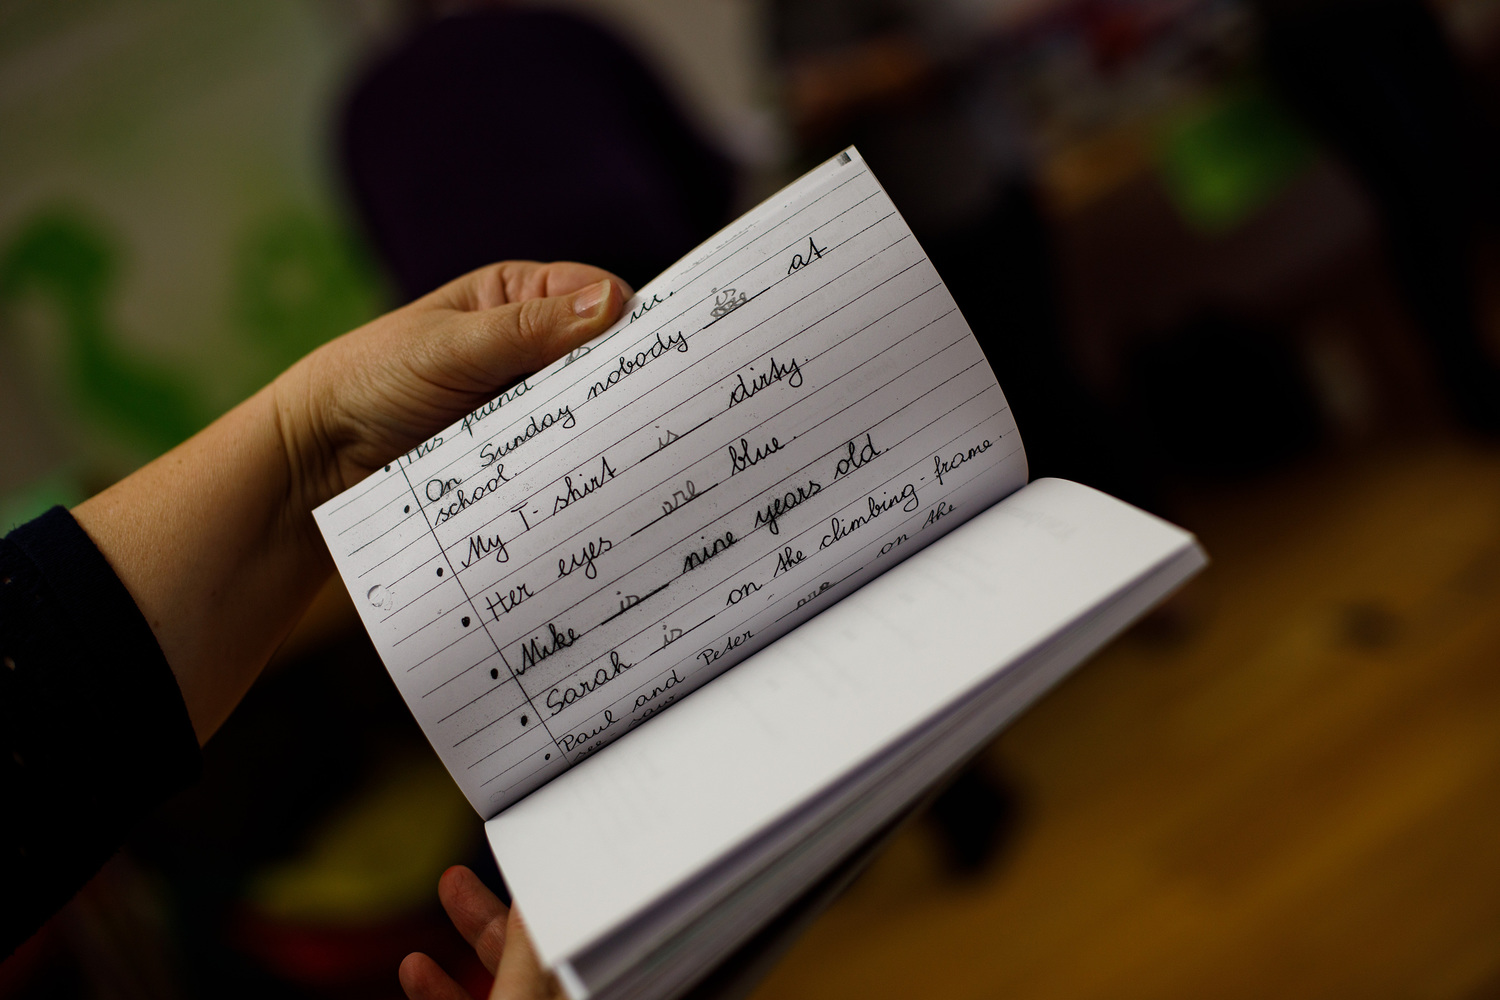 His friend is in.
On Sunday nobody is at
school.
My T-shirt is dirty.
Her eyes are blue.
Mike is nine years old.
Sarah is on the climbing-frame.
Paul and Peter are on the
see-saw